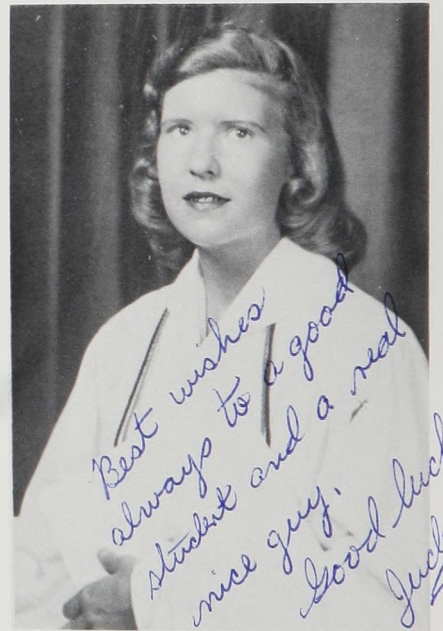 Best wishes
always to a good
student and a real
nice guy.
Good luck